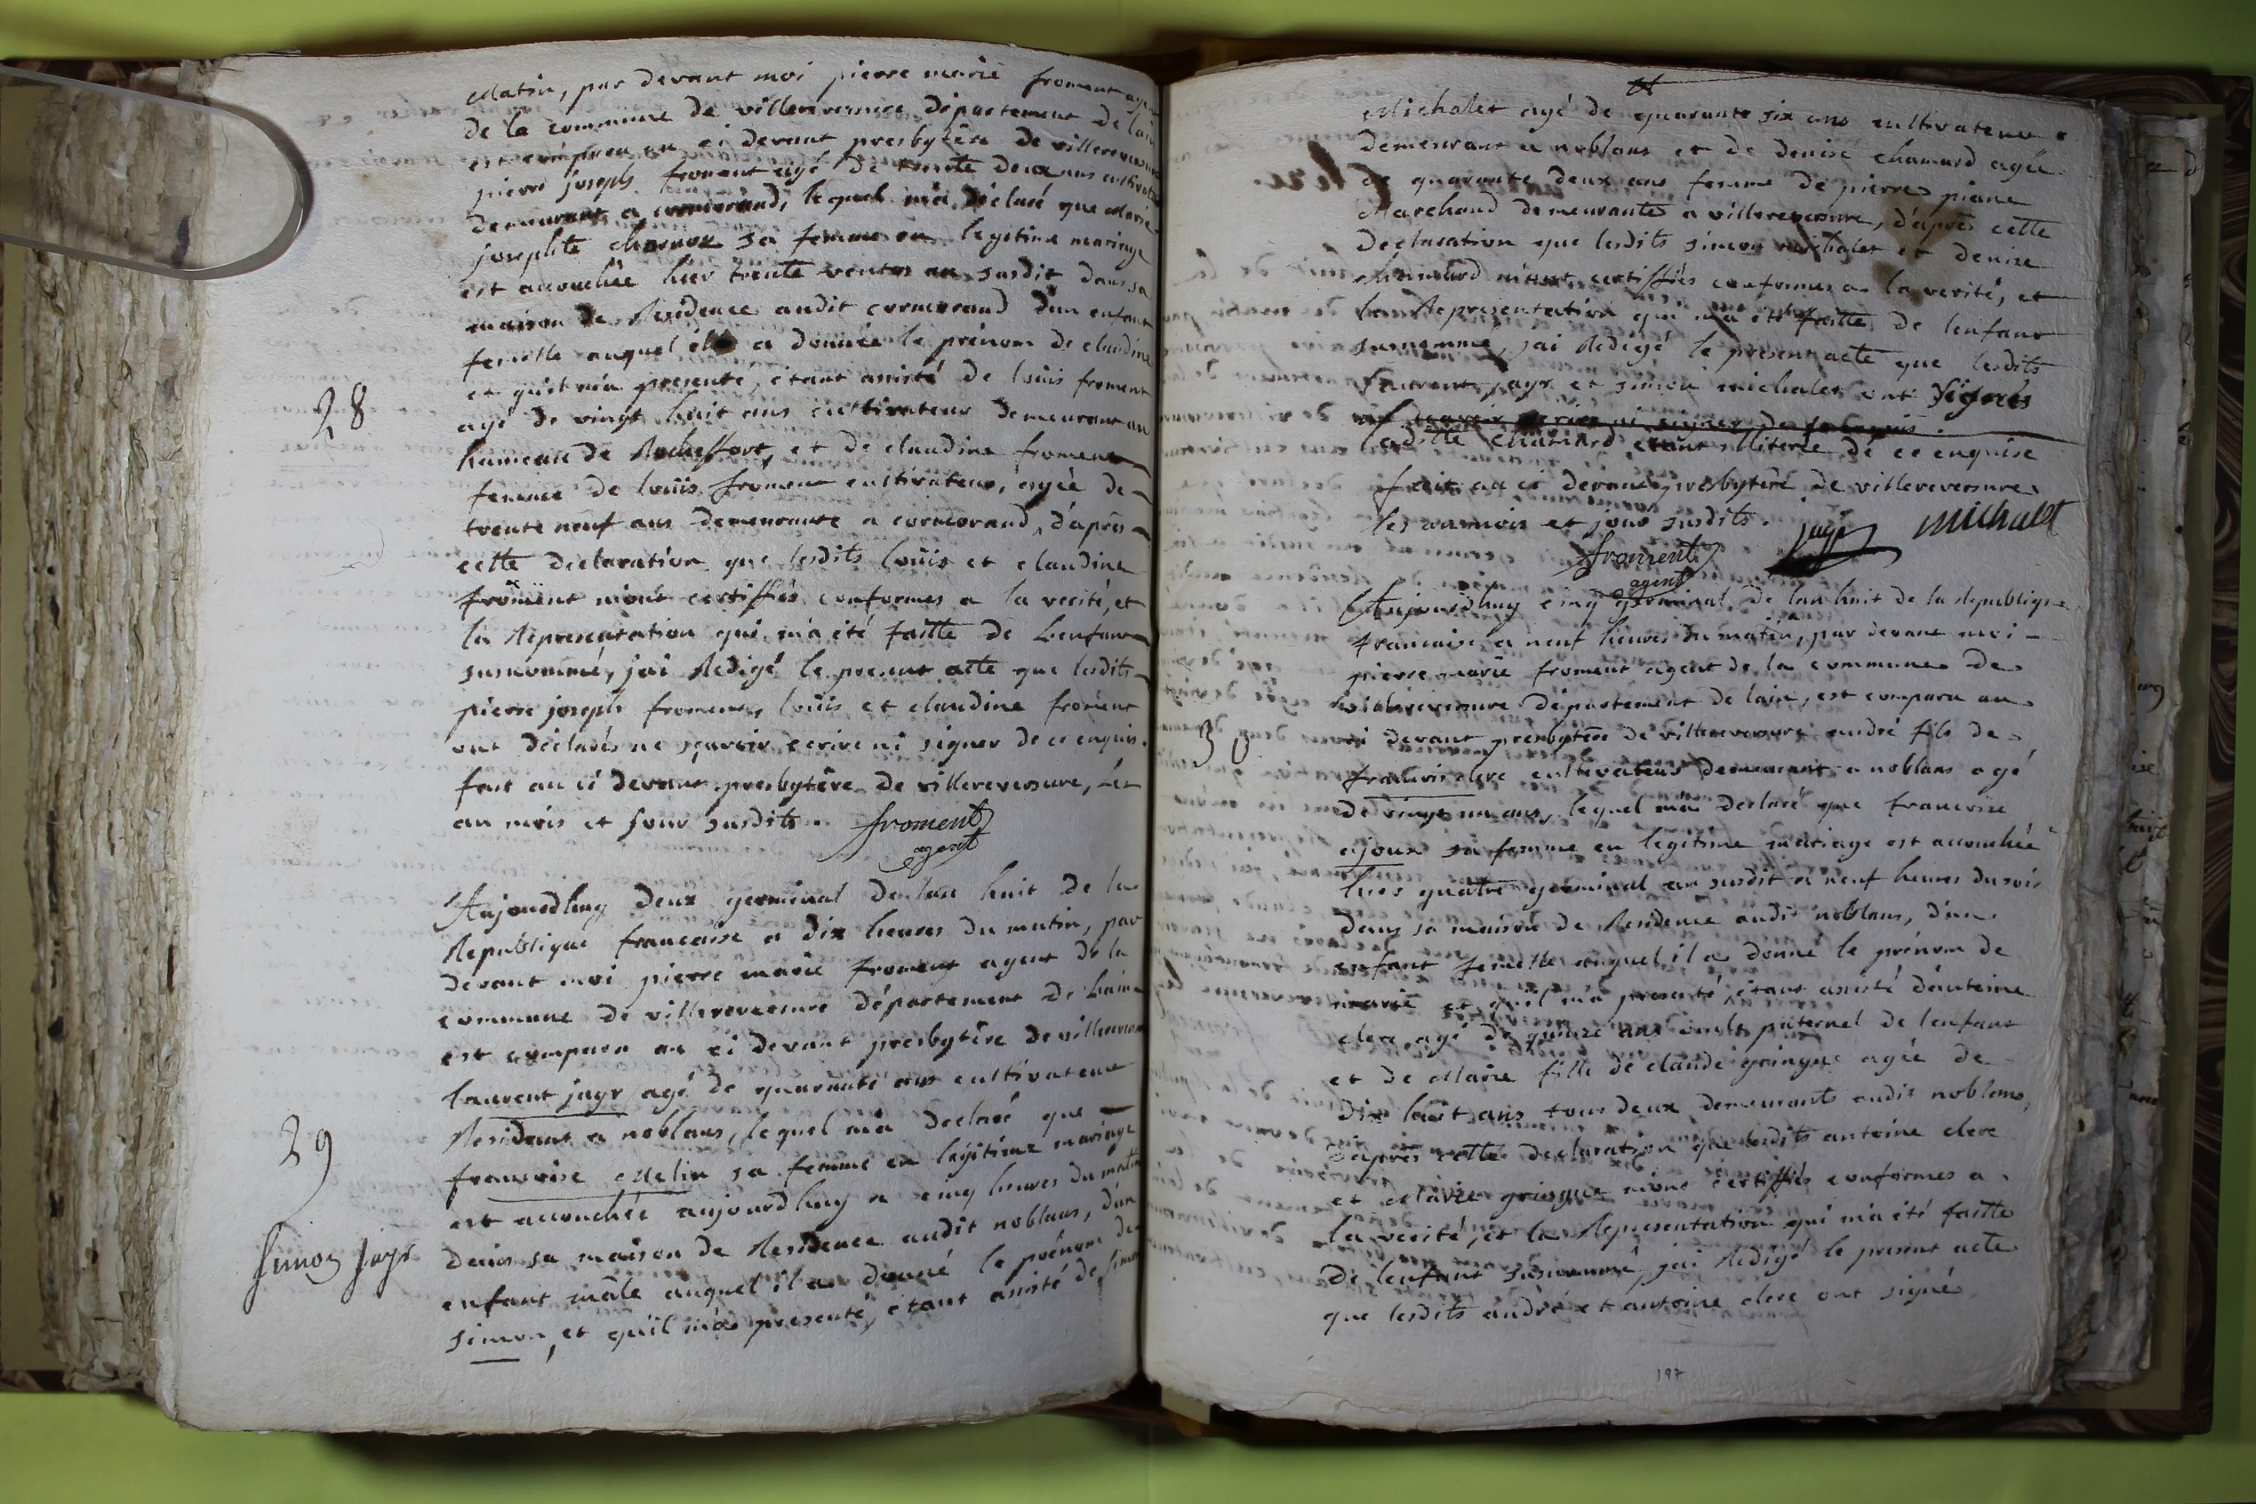 Matin, par devant moi pierre marie froment agent
de la commune de villereversure département de lain
est comparu au ci devant presbytère de villereversure
pierre joseph froment agé de trente deux ans cultivateur
demeurant a cormorand, lequel m'a déclaré que Marie
josephte sa femme en legitime mariage
est accouchée hier trente ventos an susdit dans sa
maison de Residence audit cormorand d'un enfant
femelle auquel il a donnée le prénom de claudine
et quil m'a presenté, étant assisté de loüis froment
agé de vingt huit ans cultivateur demeurant au
28
hameau de Rocheffort, et de claudine froment
femme de loüis froment cultivateur, agée de
trente neuf ans demeurante a cormorand, d'aprés
cette declaration que lesdits loüis et claudine
froment m'ont certiffiés conformes a la verité, et
la Representation qui m'a été faitte de l'enfant
susnommé, jai Redigé le present acte que lesdits
pierre joseph froment, loüis et claudine froment
ont déclarés ne sçavoir ecrire ni signer de ce enquis.
fait au ci devant presbytère de villereversure, les
an mois et jour susdits. froment
agent
Aujourdhuy deux germinal de lan huit de la
Republique francaise a dix heures du matin, par
devant moi pierre marie froment agent de la
commune de villereversure département de lain
est comparu au ci devant presbytère de villereversure
laurent jayr agé de quarante ans cultivateur
29
Residant a noblans, lequel m'a declaré que
francoise Melin sa femme en légitime mariage
est accouchée aujourdhuy a cinq heures du matin
Simon Jayr
dans sa maison de Residence audit noblans, d'un
enfant mâle auquel il a donné le prénom de
simon, et qu'il m'a presenté, étant assisté de simon
Michalet agé de quarante six ans cultivateur
demeurant a noblans et de denise chanard agée
Clerc
de quarante deux ans femme de pierre piane
Marchand demeurante a villereversure, d'aprés cette
declaration que lesdits simon michalet et denise
chanard m'ont certiffiés conformes a la verité, et
la Representation qui m'a été faitte de lenfant
susnommé, jai Redigé le present acte que lesdits
laurent jayr et simon michalet ont signés
laditte chanard étant illiterée de ce enquise
fait au ci devant presbytère de villereversure
les an mois et jour susdits. jayr michalet
froment
agent
Aujourdhuy cinq germinal de lan huit de la Republique
francaise a neuf heures du matin, par devant moi
pierre marie froment agent de la commune de
villereversure département de lain, est comparu au
30
ci devant presbytère de villereversure andré fils de
francois clerc cultivateur demeurant a noblans agé
de vingt un ans, lequel m'a declaré que francoise
ajoux sa femme en legitime mariage est accouchée
hier quatre germinal an susdit a neuf heures du soir
dans sa maison de Residence audit noblans, d'un
enfant femelle auquel il a donné le prénom de
marie et qu'il m'a presenté, étant assisté d'antoine
clerc agé de quinze ans oncle paternel de lenfant
et de Marie fille de claude goingue agée de
dix huit ans tous deux demeurants audit noblans,
d'aprés cette declaration que lesdits antoine clerc
et Marie gringue m'ont certiffiés conformes a
la verité, et la Representation qui m'a été faitte
de lenfant susnommé, jai Redigé le present acte
que lesdits andré et antoine clerc ont signé
197